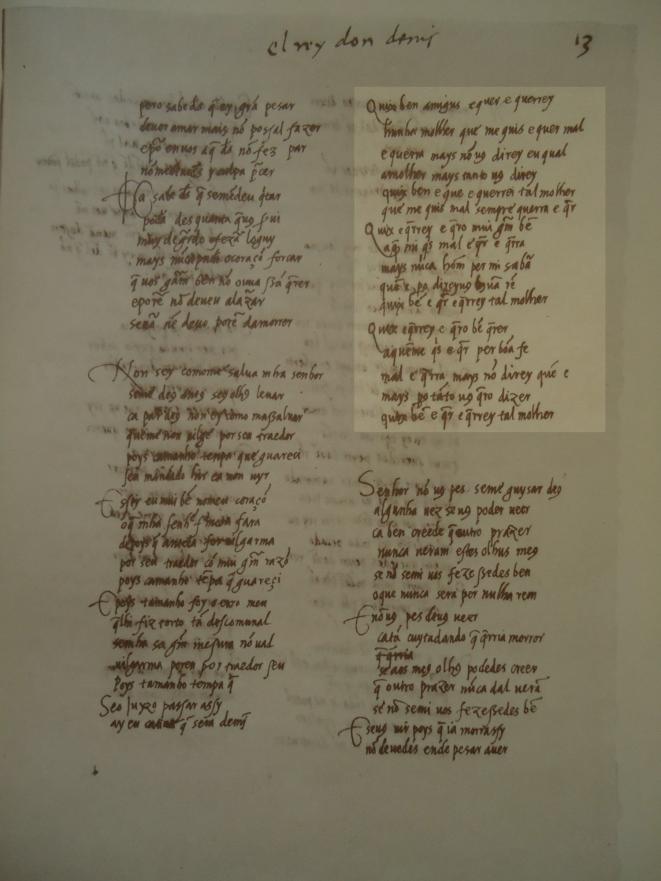 el rey don denis
13
pero sabe ds q̃ ey grã pesar
deuos amar mais nõ possal fazer
e põ en uos aq̃ ds nõ fez par
nõ
Ca sabe ds q̃ semedeu
des quanta q̃ uꝯ ui
muy degrado
mays nũca o coraçõ forcar
q̃ uos grãm ben nõ ouua ßa q̃rer
e porẽ nõ deueu alazar
senõ nẽ deuo porẽ damorrer
Non sey comome salua mha senhor
seme deꝯ anos seꝯ olhꝯ leuar
ca par deꝯ non ey como maßaluar
queme non iulge por seu traedor
poys tamanho tempa que guareci
sen mandado hir ea non uyr
E sey eu mui bẽ nomeu coraçõ
o q̃ mha senh
depoys q̃
por seu traedor cõ mui grãm razõ
poys tamanho tẽpa q̃ guareçi
E poys tamanho foy o erro meu
q̃lhi fiz torto tã descomunal
semha sa grãm mesura nõ ual
iulgarma poren por traedor seu
Poys tamanho tempa q̃
Seo Juyzo passar assy
ay eu catiuo q̃ sera demĩ
Quix ben amigus e quer e querrey
hunha molher que me quis e quer mal
e querra mays nõ uꝯ direy eu qual
a molher mays tanto uꝯ direy
quix ben e que e querrei tal molher
que me quis mal sempre querra e q̃r
Quix e q̃rrey e q̃ro mui grãm bẽ
a q̃ mi q̃s mal e q̃r e q̃rra
mays nũca hom per mi sabã
quẽ e pa direyuꝯ hũa rẽ
quix bẽ e q̃r e q̃rrey tal molher
Quix e q̃rrey e q̃ro bẽ q̃rer
a quẽ me q̃s e q̃r per bõa fe
mal e q̃rra mays nõ direy quẽ e
mays po tãto uꝯ q̃ro dizer
quix bẽ e q̃r e q̃rrey tal molher
Senhor nõ uꝯ pes seme guysar deꝯ
algunha uez seuꝯ poder ueer
ca ben creede q̃ outro prazer
nunca ueram estes olhus meꝯ
se nõ semi uos fezeßedes ben
o que nunca sera por nulha rem
E nõ uꝯ pes de uꝯ ueer
ca tã cuytadando q̃ q̃rria morrer
q̃ q̃rria
se aos meꝯ olhꝯ podedes creer
q̃ outro prazer nũca dal uerã
se nõ semi uos fezeßedes bẽ
E seuꝯ uir poys q̃ ia moyrassy
nõ deuedes ende pesar auer